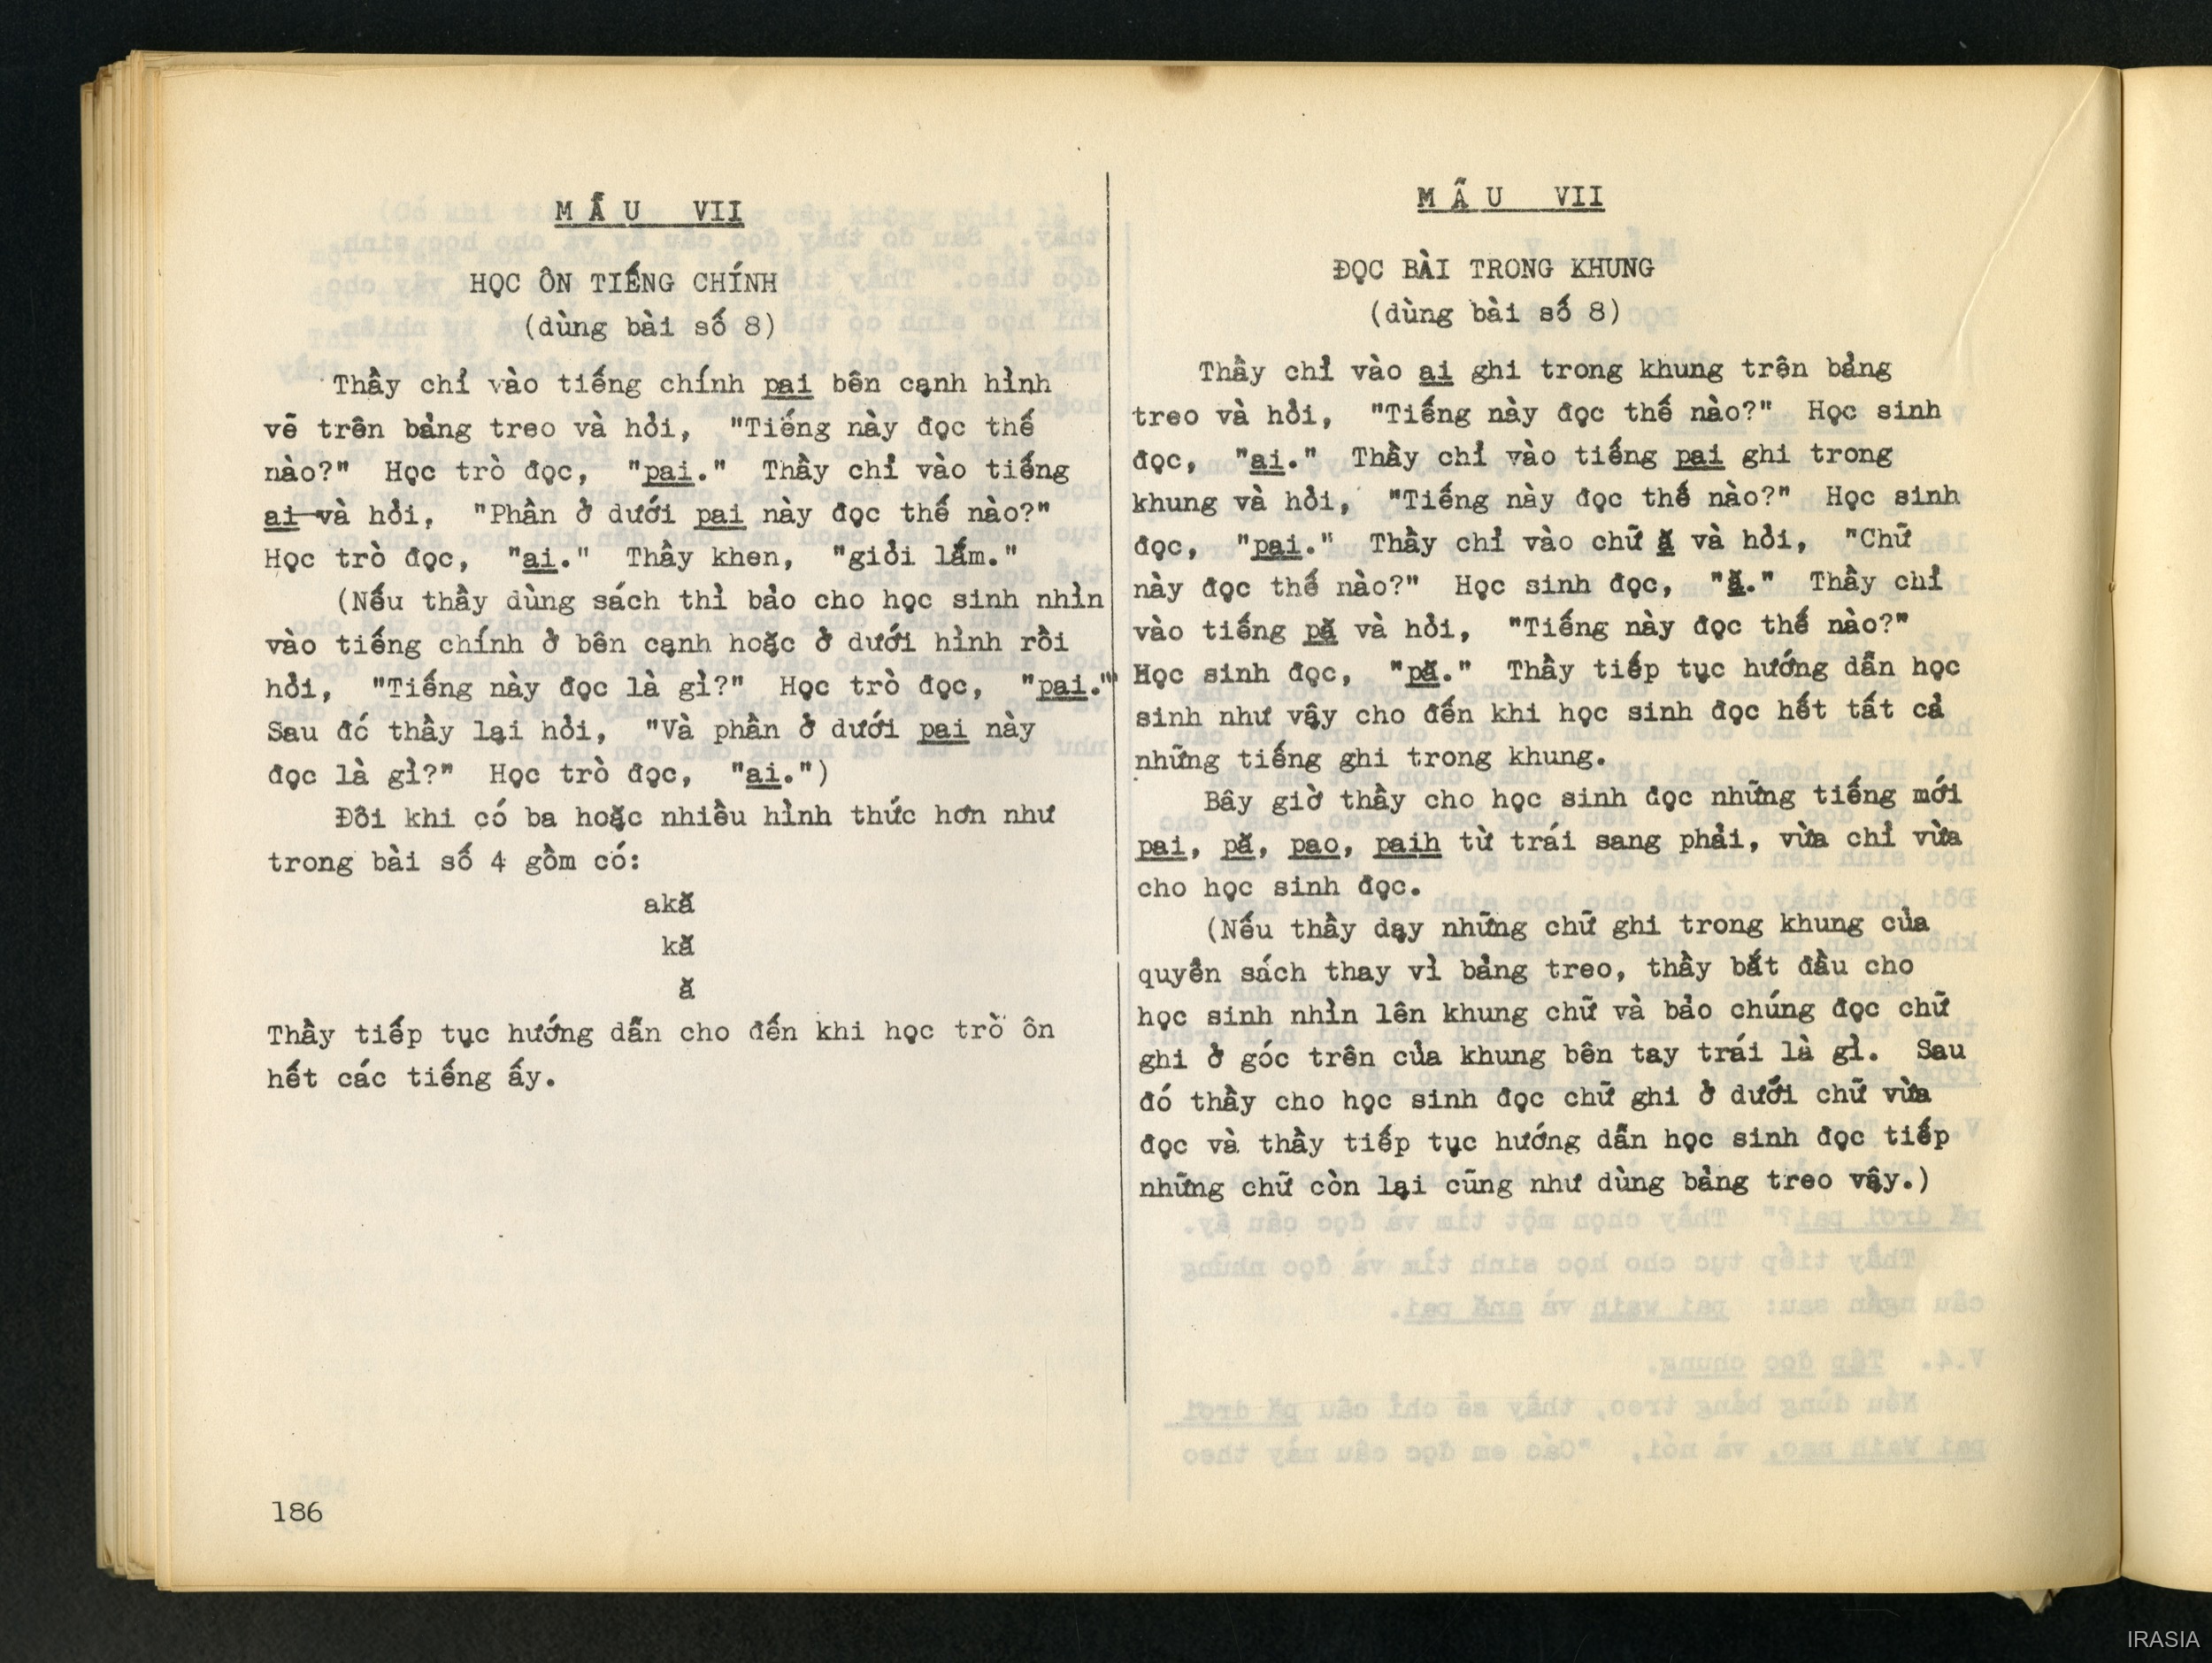 MẪU VII
HỌC ÔN TIẾNG CHÍNH
(dùng bài số 8)
Thầy chỉ vào tiếng chính pai bên cạnh hình
vẽ trên bảng treo và hỏi, "Tiếng này đọc thế
nào?" Học trò đọc, "pai." Thầy chỉ vào tiếng
ai và hỏi, "Phần ở dưới pai này đọc thế nào?"
Học trò đọc, "ai." Thầy khen, "giỏi lắm."
(Nếu thầy dùng sách thì bảo cho học sinh nhìn
vào tiếng chính ở bên cạnh hoặc ở dưới hình rồi
hỏi, "Tiếng này đọc là gì?" Học trò đọc, "pai."
Sau đó thầy lại hỏi, "Và phần ở dưới pai này
đọc là gì?" Học trò đọc, "ai.")
Đôi khi có ba hoặc nhiều hình thức hơn như
trong bài số 4 gồm có:
akă
kă
ă
Thầy tiếp tục hướng dẫn cho đến khi học trò ôn
hết các tiếng ấy.
186
MẪU VII
ĐỌC BÀI TRONG KHUNG
(dùng bài số 8)
Thầy chỉ vào ai ghi trong khung trên bảng
treo và hỏi, "Tiếng này đọc thế nào?" Học sinh
đọc, "ai." Thầy chỉ vào tiếng pai ghi trong
khung và hỏi, "Tiếng này đọc thế nào?" Học sinh
đọc, "pai." Thầy chỉ vào chữ ă và hỏi, "Chữ
này đọc thế nào?" Học sinh đọc, "ă." Thầy chỉ
vào tiếng pă và hỏi, "Tiếng này đọc thế nào?"
Học sinh đọc, "pă." Thầy tiếp tục hướng dẫn học
sinh như vậy cho đến khi học sinh đọc hết tất cả
những tiếng ghi trong khung.
Bây giờ thầy cho học sinh đọc những tiếng mới
pai, pă, pao, paih từ trái sang phải, vừa chỉ vừa
cho học sinh đọc.
(Nếu thầy dạy những chữ ghi trong khung của
quyển sách thay vì bảng treo, thầy bắt đầu cho
học sinh nhìn lên khung chữ và bảo chúng đọc chữ
ghi ở góc trên của khung bên tay trái là gì. Sau
đó thầy cho học sinh đọc chữ ghi ở dưới chữ vừa
đọc và thầy tiếp tục hướng dẫn học sinh đọc tiếp
những chữ còn lại cũng như dùng bảng treo vậy.)
IRASIA